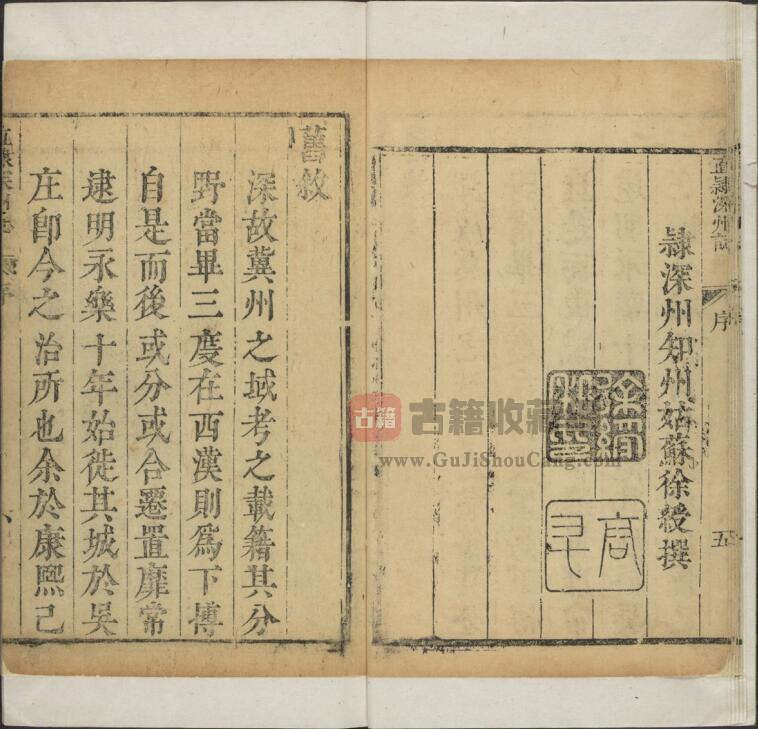 直隷深州
序
五
隷深州知州姑蘇徐綬撰
舊敘
深故冀州之域考之載籍其分
野當畢三度在西漢則爲下博
自是而後或分或合遷置靡常
逮明永樂十年始徙其城於吳
庄卽今之治所也余於康熙己
序
古籍
古籍收藏
www.GuJiShouCang.com